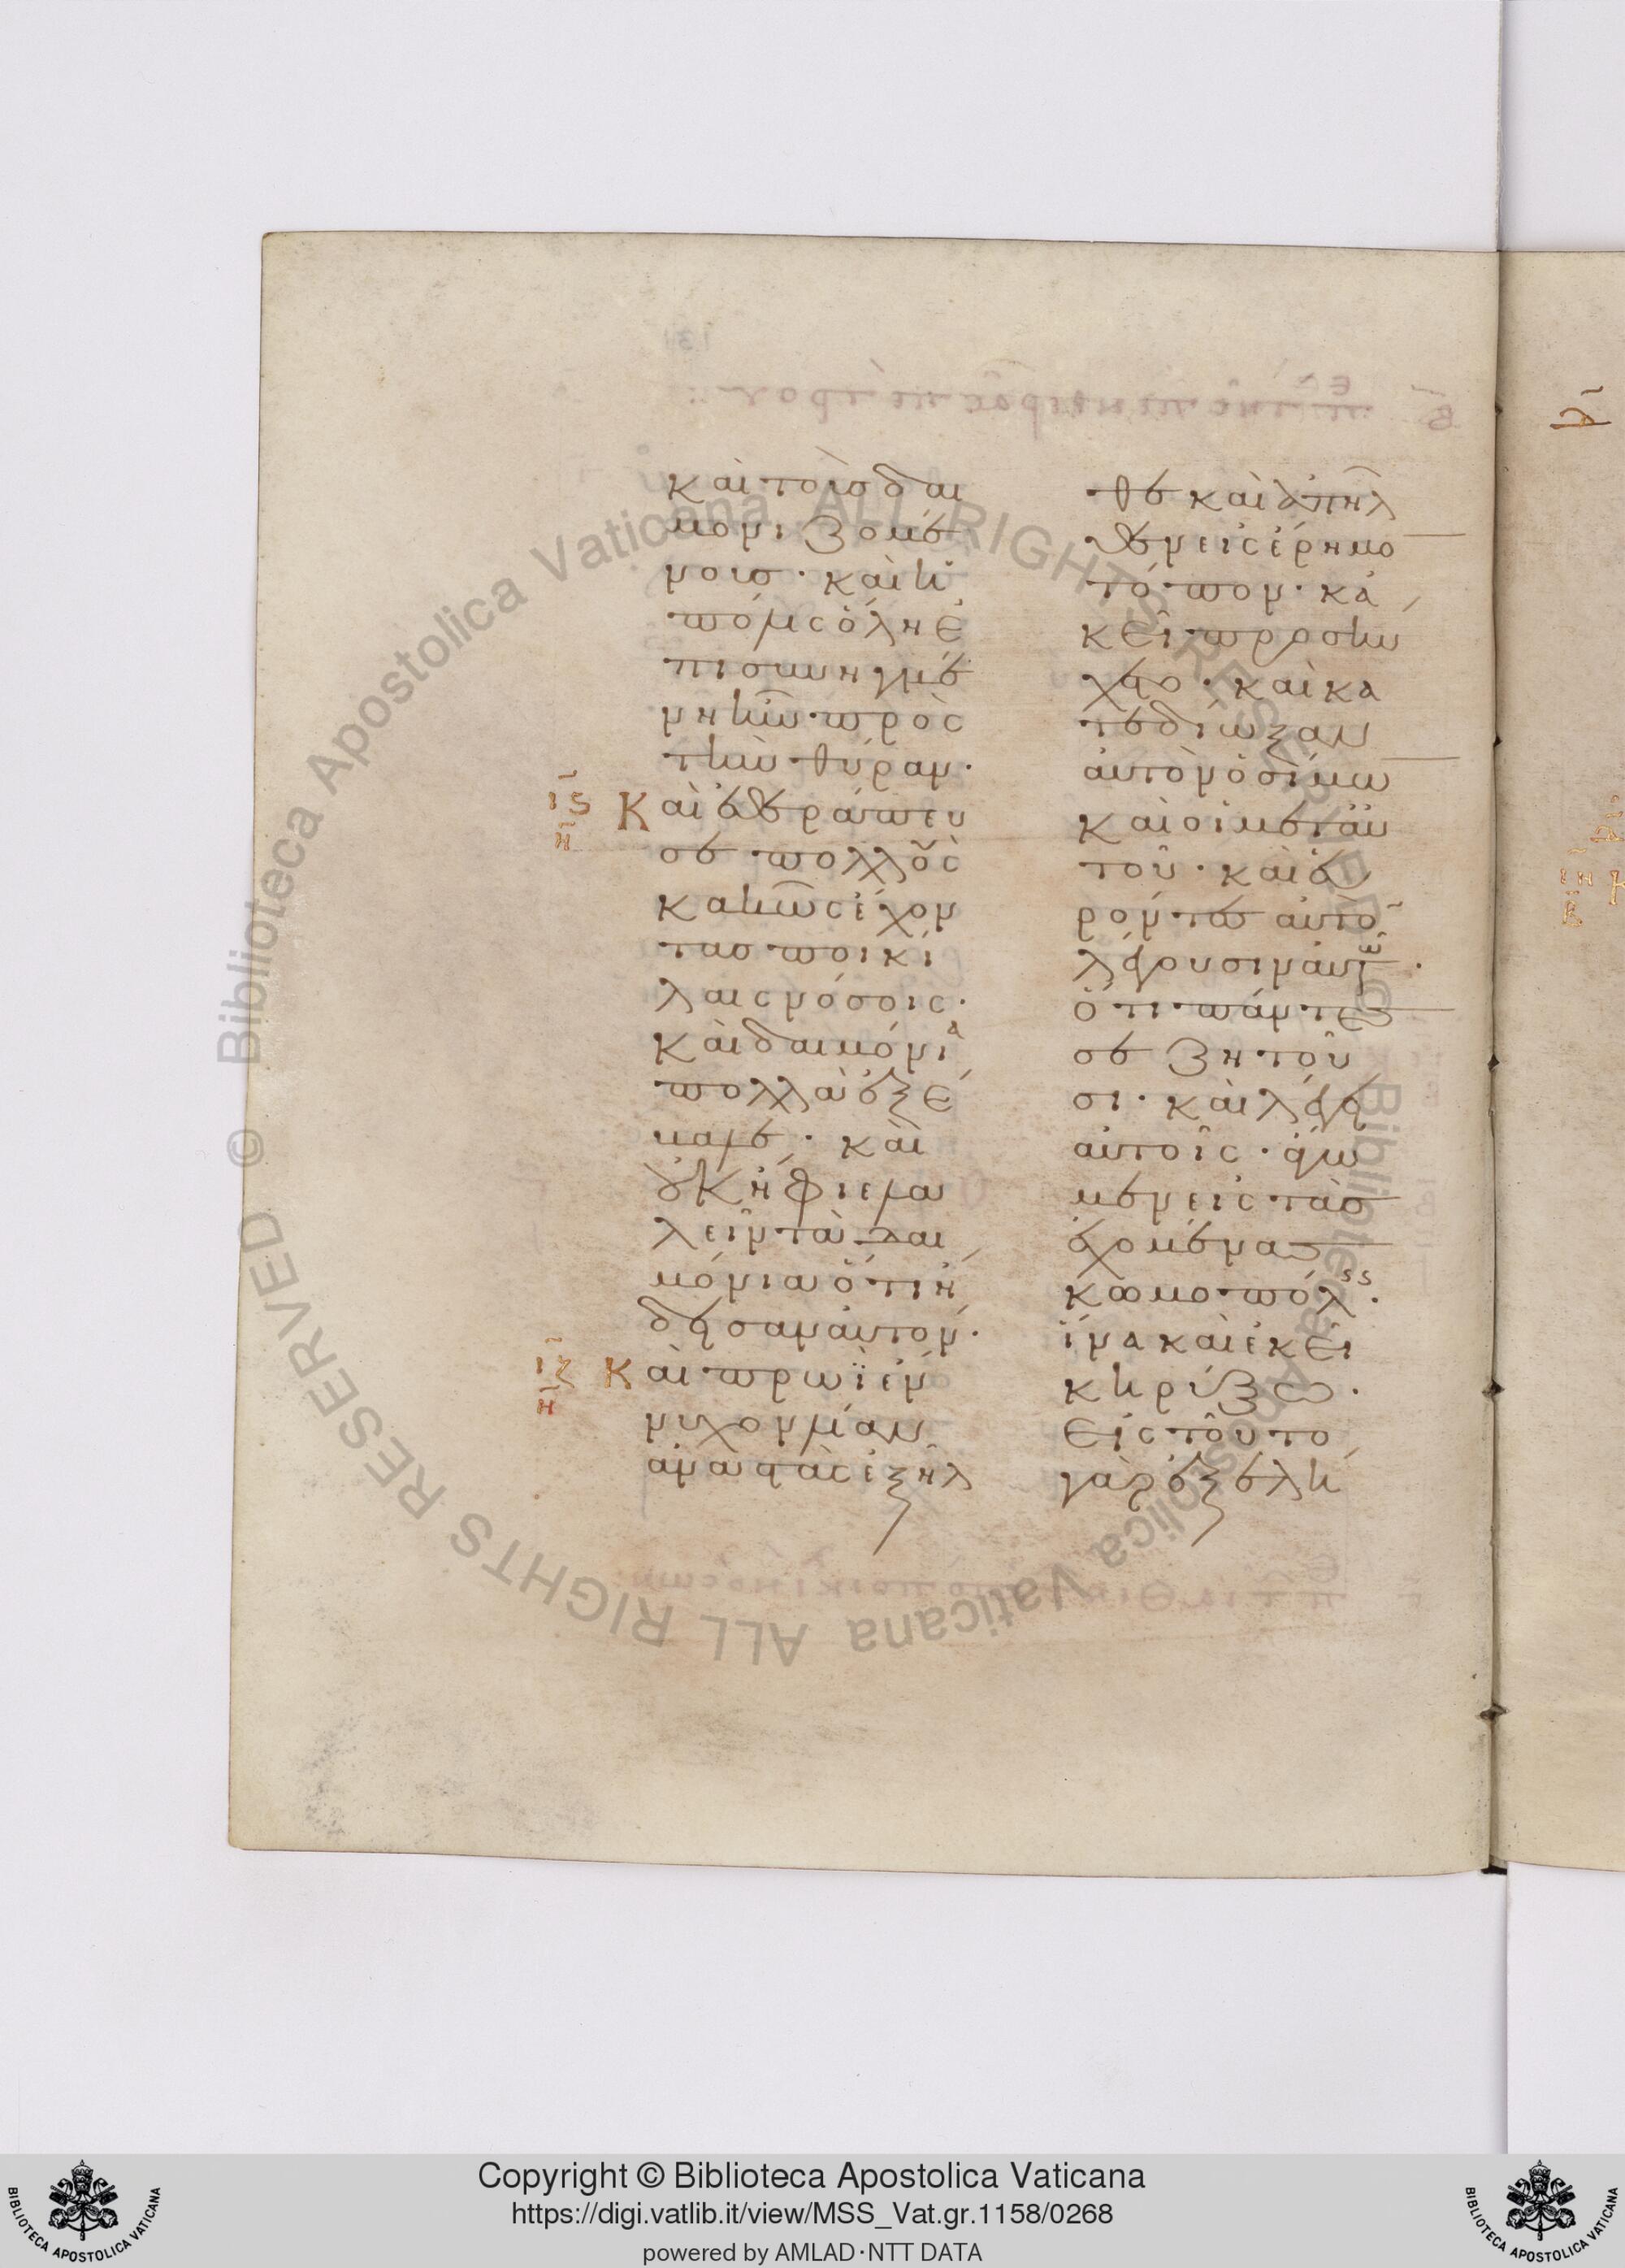 καὶ τοὺς δαι
μονιζομέ
νους· καὶ ἡ
πόλις ὅλη ἐ
πισυνηγμέ
νη ἦν πρὸς
τὴν θύραν·
ις Καὶ ἐθεράπευ
η
σε πολλοὺς
κακῶς ἔχον
τας ποικί
λαις νόσοις·
καὶ δαιμόνια
πολλὰ ἐξέ
βαλε· καὶ
οὐκ ἤφιε λα
λεῖν τὰ δαι
μόνια ὅτι ᾔ
δεισαν αὐτόν·
ιζ Καὶ πρωῒ ἔν
η
νυχον λίαν
ἀναστὰς ἐξῆλ
θε καὶ ἀπῆλ
θεν εἰς ἔρημο
τόπον· κἀ
κεῖ προσηύ
χετο· καὶ κα
τεδίωξαν
αὐτὸν ὁ σίμω
καὶ οἱ μετ αὐ
τοῦ· καὶ εὑ
ρόντες αὐτὸ
λέγουσιν αὐτῷ·
ὅτι πάντες
σε ζητοῦ
σι· καὶ λέγει
αὐτοῖς· ἄγω
μεν εἰς τὰς
ἐχομένας
κωμοπόλεις·
ἵνα καὶ ἐκεῖ
κηρύξω·
εἰς τοῦτο
γὰρ ἐξελή
Copyright © Biblioteca Apostolica Vaticana
https://digi.vatlib.it/view/MSS_Vat.gr.1158/0268
powered by AMLAD·NTT DATA